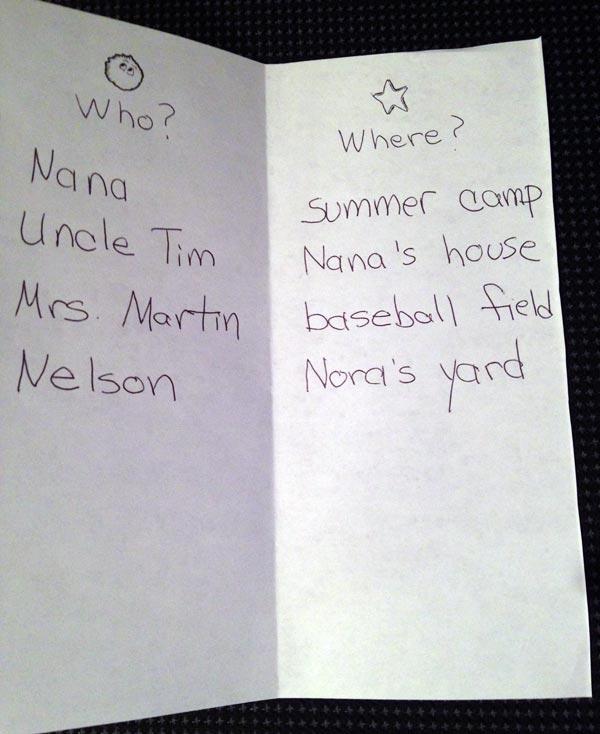 Who?
Nana
Uncle Tim
Mrs. Martin
Nelson
Where?
summer camp
Nana's house
baseball field
Nora's yard